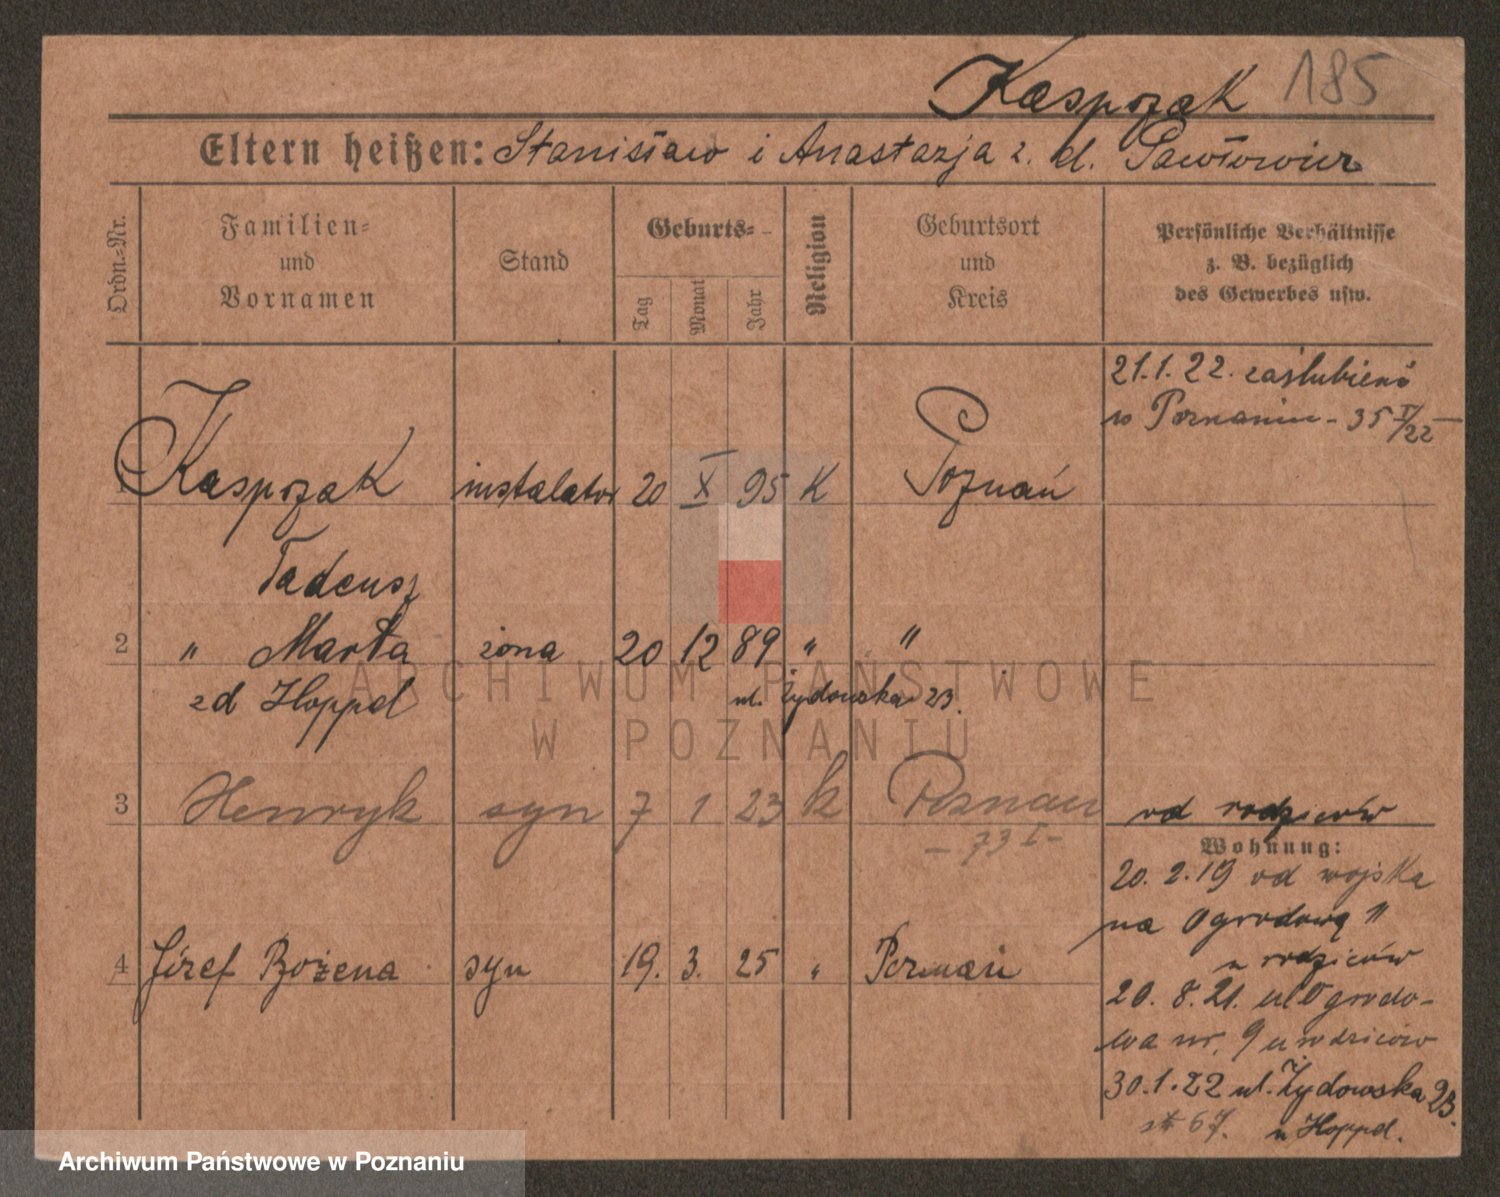 Kasprzak 185
Eltern heißen: Stanisław i Anastazja z. d. Pawłowicz
Ordn.=Nr.
Familien=
und
Vornamen
Stand
Geburts=
Tag
Monat
Jahr
Religion
Geburtsort
und
Kreis
Persönliche Verhältnisse
z. B. bezüglich
des Gewerbes usw.
21.1.22. zaślubieni
w Poznaniu - 35 I/22
1 Kasprzak instalator 20 X 95 K Poznań
Tadeusz
2 " Marta żona 20 12 89 " "
zd Hoppel ul. Żydowska 23.
3 Henryk syn 7 1 23 k Poznań
- 73 I -
od rodziców
Wohnung:
20. 2. 19 od wojska
na Ogrodową 11
u rodziców
4 Józef Bożena syn 19. 3. 25 " Poznań
20. 8. 21. ul Ogrodo-
wa nr. 9 u rodziców
30.1.22 ul. Żydowska 23.
67. u Hoppel.
ARCHIWUM PAŃSTWOWE
W POZNANIU
Archiwum Państwowe w Poznaniu